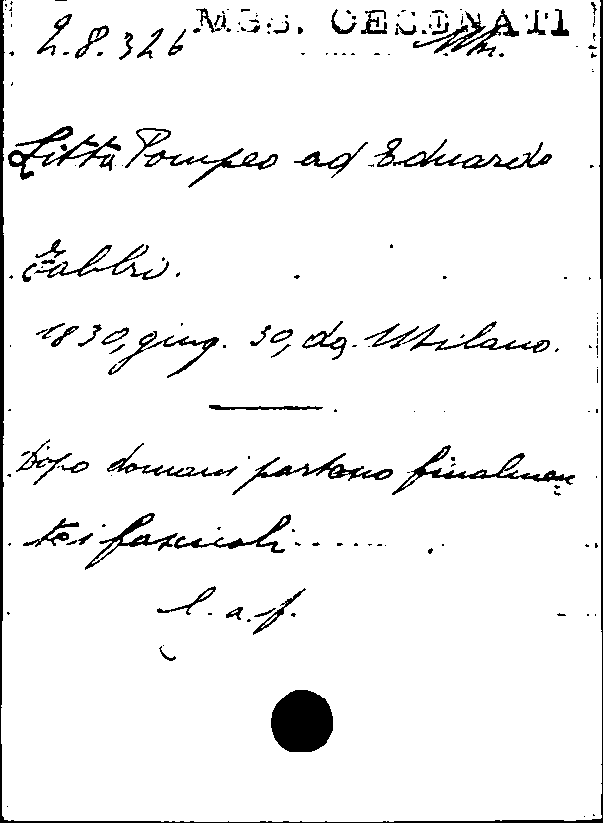 MSS. CESENATI
2.8.326 Ms.
Litta Pompeo ad Eduardo
Fabbri.
1830, giug. 30, da Milano.
Dopo domani partono finalmen
te i fascicoli.......
l. a. f.